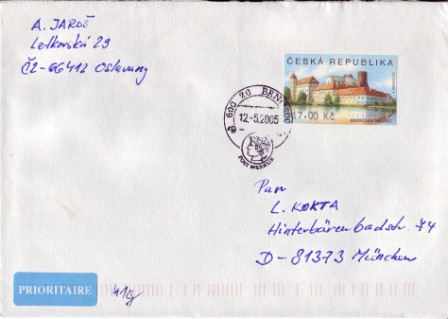 A. JAROŠ
Letkovská 29
ČZ-66412 Oslavany
ČESKÁ REPUBLIKA
17.00 Kč
600 20 BRNO
12.-5.2005
Pan
L. KOKTA
Hinterbärenbadstr. 74
D-81373 München
PRIORITAIRE
41g